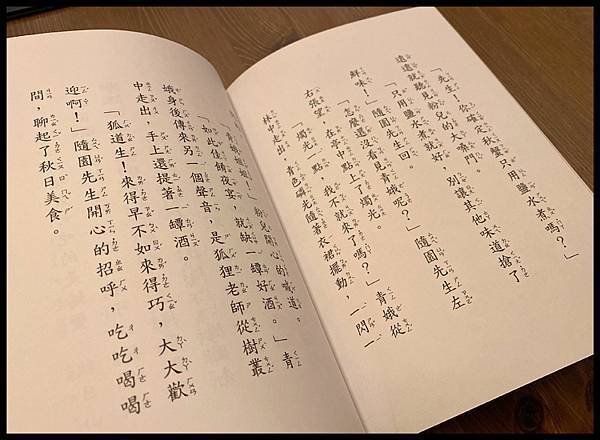 「先生！你確定秋蟹只用鹽水煮？」
遠遠就聽見粉兒的大嗓門。
「只用鹽水煮就好，別讓其他味道搶了
鮮味！」隨園先生回。
「怎麼還沒看見青娥呢？」隨園先生左
右張望，在亭中點上了燭光。
「燭光一點，我不就來了嗎？」青娥從
林中走出，青色光隨著衣裙擺動，一閃一
粉兒開心的喊道。
「如此佳餚夜宴，就缺一罈好酒。」青
娥身後傳來另一個聲音，是狐狸老師從樹叢
中走出，手上還提著一罈酒。
「狐道生！來得早不如來得巧，大大歡
迎啊！」隨園先生開心的招呼，吃吃喝喝
間，聊起了秋日美食。